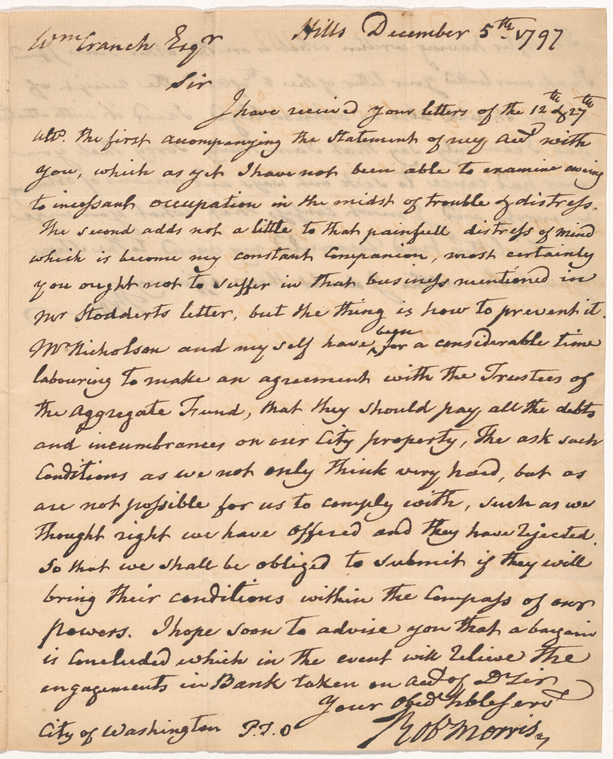 Wm Cranch Esqr Hills December 5th 1797
Sir
I have received your letters of the 12th & 27th
ulto. the first accompanying the Statement of my acct with
you, which as yet I have not been able to examine owing
to incessant occupation in the midst of trouble & distress.
The second adds not a little to that painfull distress of mind
which is become my constant Companion, most certainly
you ought not to suffer in that business mentioned in
Mr Stodderts letter, but the thing is how to prevent it.
Mr Nicholson and my self have been for a considerable time
labouring to make an agreement with the Trustees of
the Aggregate Fund, that they should pay all the debts
and incumbrances on our City property, The ask such
Conditions as we not only think very hard, but as
are not possible for us to comply with, such as we
thought right we have offered and they have rejected.
So that we shall be obliged to submit if they will
bring their conditions within the Compass of our
powers. I hope soon to advise you that a bargain
is Concluded which in the event will relieve the
engagements in Bank taken on acct of Dr Sir
Your Obedt hble servt
City of Washington P.T.O Robt Morris